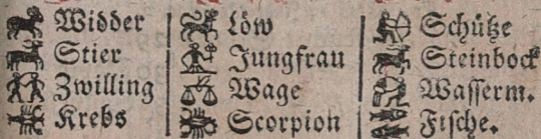 Widder
Stier
Zwilling
Krebs
Löw
Jungfrau
Wage
Scorpion
Schütze
Steinbock
Wasserm.
Fische.